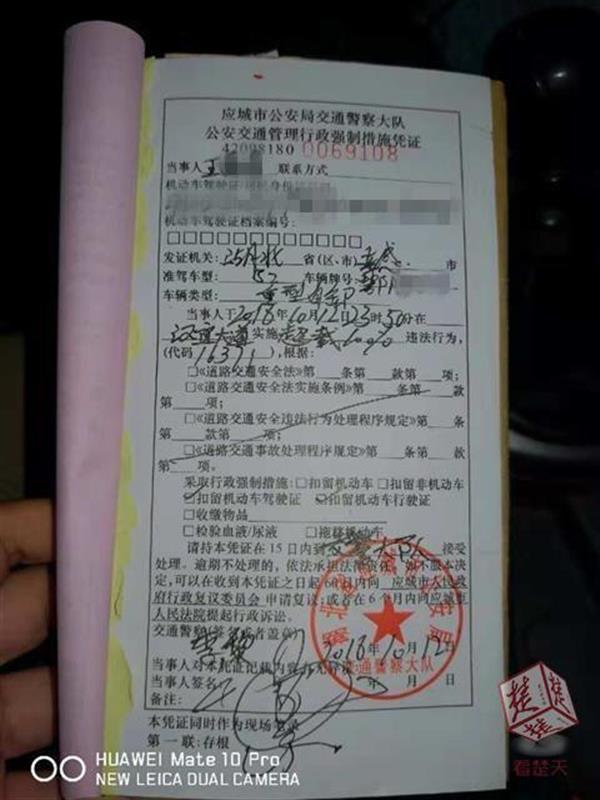 应城市公安局交通警察大队
公安交通管理行政强制措施凭证
42098180 0069108
当事人 王 联系方式
机动车驾驶证
机动车驾驶证档案编号:
□□□□□□□□□□□□
发证机关: 湖北 省(区、市) 孝感 市
准驾车型: B2 车辆牌号: 鄂
车辆类型: 重型自卸
当事人于2018年10月12日23时50分在
汉宜大道 实施 超载 100% 违法行为,
(代码16371),根据:
□《道路交通安全法》第 条第 款第 项;
□《道路交通安全法实施条例》第 条第 款
第 项;
□《道路交通安全违法行为处理程序规定》第 条
第 款第 项;
□《道路交通事故处理程序规定》第 条第 款
第 项。
采取行政强制措施:□扣留机动车 □扣留非机动车
☑扣留机动车驾驶证 ☑扣留机动车行驶证
□收缴物品
□检验血液/尿液 □拖移机动车
请持本凭证在15日内到 大队 接受
处理。逾期不处理的,依法承担法律责任。如不服本决
定,可以在收到本凭证之日起60日内向 应城市人民政
府行政复议委员会 申请复议;或者在6个月内向应城市
人民法院提起行政诉讼。
交通警察(签名或者盖章)
2018年10月12日
当事人对本凭证记载内容有无异议
交通警察大队
当事人签名: 年 月 日
备注:
本凭证同时作为现场笔录
第一联:存根
HUAWEI Mate 10 Pro
NEW LEICA DUAL CAMERA
楚楚
看楚天